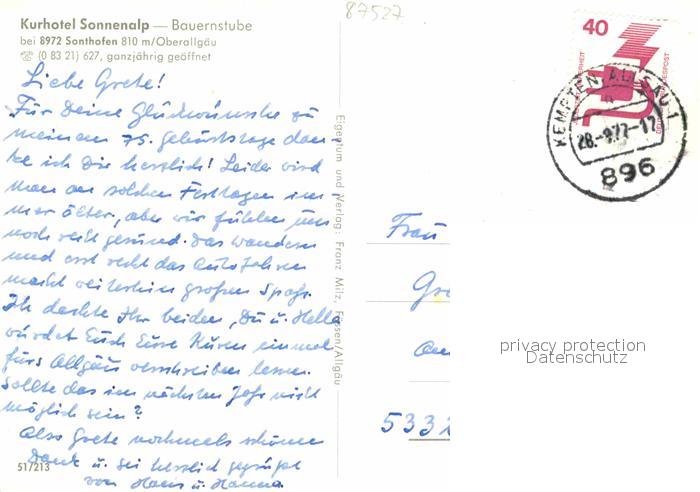 87527
Kurhotel Sonnenalp — Bauernstube
bei 8972 Sonthofen 810 m/Oberallgäu
☎ (0 83 21) 627, ganzjährig geöffnet
Liebe Grete!
Für Deine Glückwünsche zu
meinem 75. Geburtstage dan-
ke ich Dir herzlich! Leider wird
man an solchen Festtagen im-
mer älter, aber wir fühlen uns
noch recht gesund. Das Wandern
und erst recht das Autofahren
macht weiterhin großen Spaß.
Ich dachte Ihr beiden, Du u. Hella
würdet Euch Eure Kuren einmal
fürs Allgäu verschreiben lassen.
Sollte das im nächsten Jahr nicht
möglich sein?
Also Grete nochmals schönen
Dank u. sei herzlich gegrüßt
von Hans u. Hanna.
51/213
Eigentum und Verlag: Franz Milz, Füssen/Allgäu
40
DEUTSCHE BUNDESPOST
KEMPTEN, ALLGÄU 1
28.-9.77-17
896
Frau
Gre
am
5332
privacy protection
Datenschutz